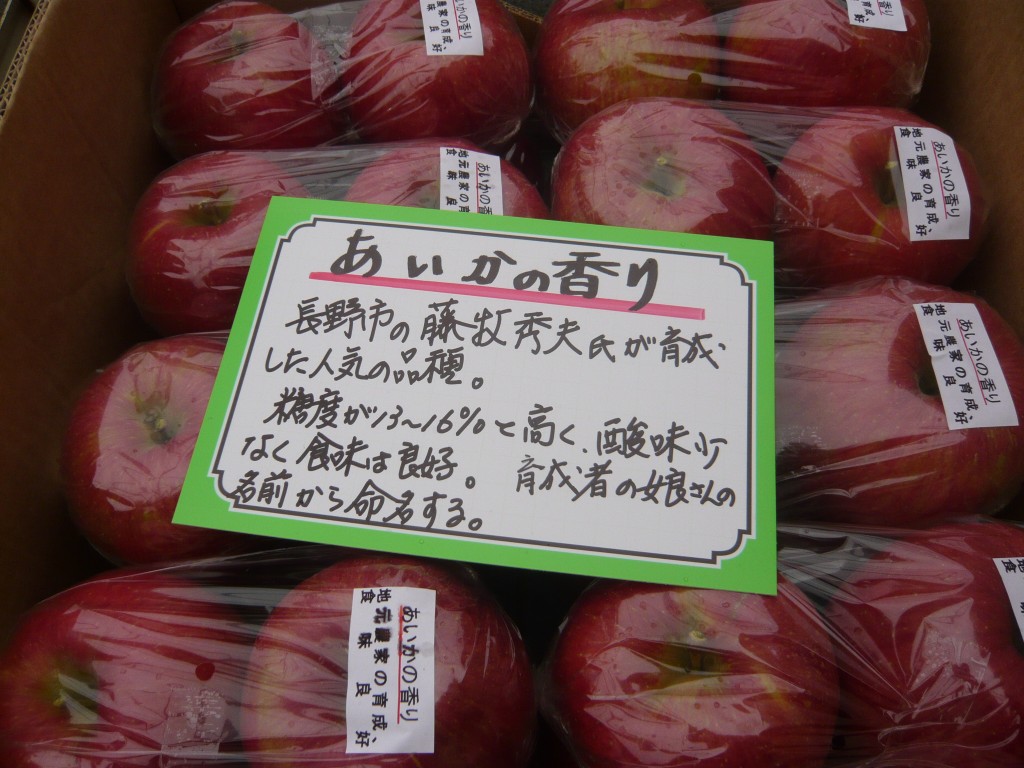 あいかの香り
長野市の藤牧秀夫氏が育成
した人気の品種。
糖度が13〜16%と高く、酸味少
なく食味は良好。育成者の娘さんの
名前から命名する。
あいかの香り
農家の育成、好
良
あいかの香り
の育成、好
良
あいかの香り
地元農家の
食味良
あいかの香り
地元農家の育成、好
食味良
あいかの香り
地元農家の育成、好
食味良
あいかの香り
地元農家の育成、
食味良
地
食